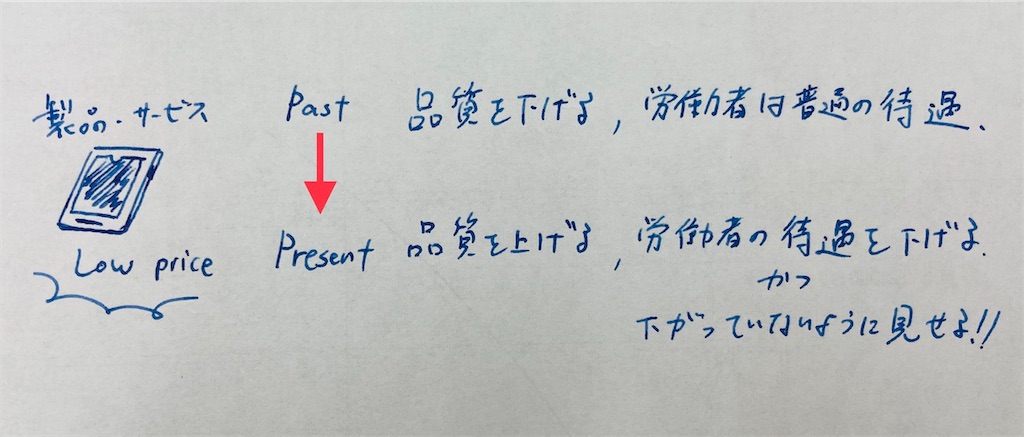 製品・サービス
Past 品質を下げる, 労働者は普通の待遇.
Low price
Present 品質を上げる, 労働者の待遇を下げる.
かつ
下がっていないように見せる!!